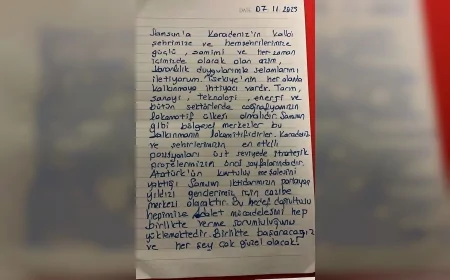 07 11 2023
Samsun'a Karadeniz'in kalbi
şehrimize ve hemşehrilerimize
güçlü, samimi ve her zaman
içimizde olarak olan azim,
kararlılık duygularımla selamlarımı
iletiyorum. Türkiye'nin her alanda
kalkınmaya ihtiyacı vardır. Tarım,
sanayi, teknoloji, enerji ve
bütün sektörlerde coğrafyamızın
lokomotif ülkesi olmalıdır. Samsun
gibi bölgesel merkezler bu
kalkınmanın lokomotifidirler. Karadeniz
ve şehirlerimizin en etkili
pozisyonları üst seviyede stratejik
projelerimizin önal sayfalarındadır.
Atatürk'ün kurtuluş meşalesini
yaktığı Samsun iktidarımızın parlayan
yıldızı gençlerimiz için cazibe
merkezi olacaktır. Bu hedef doğrultusu
hepimize adalet mücadelesini hep
birlikte verme sorumluluğunu
yüklemektedir. Birlikte başaracağız
ve her şey çok güzel olacak!